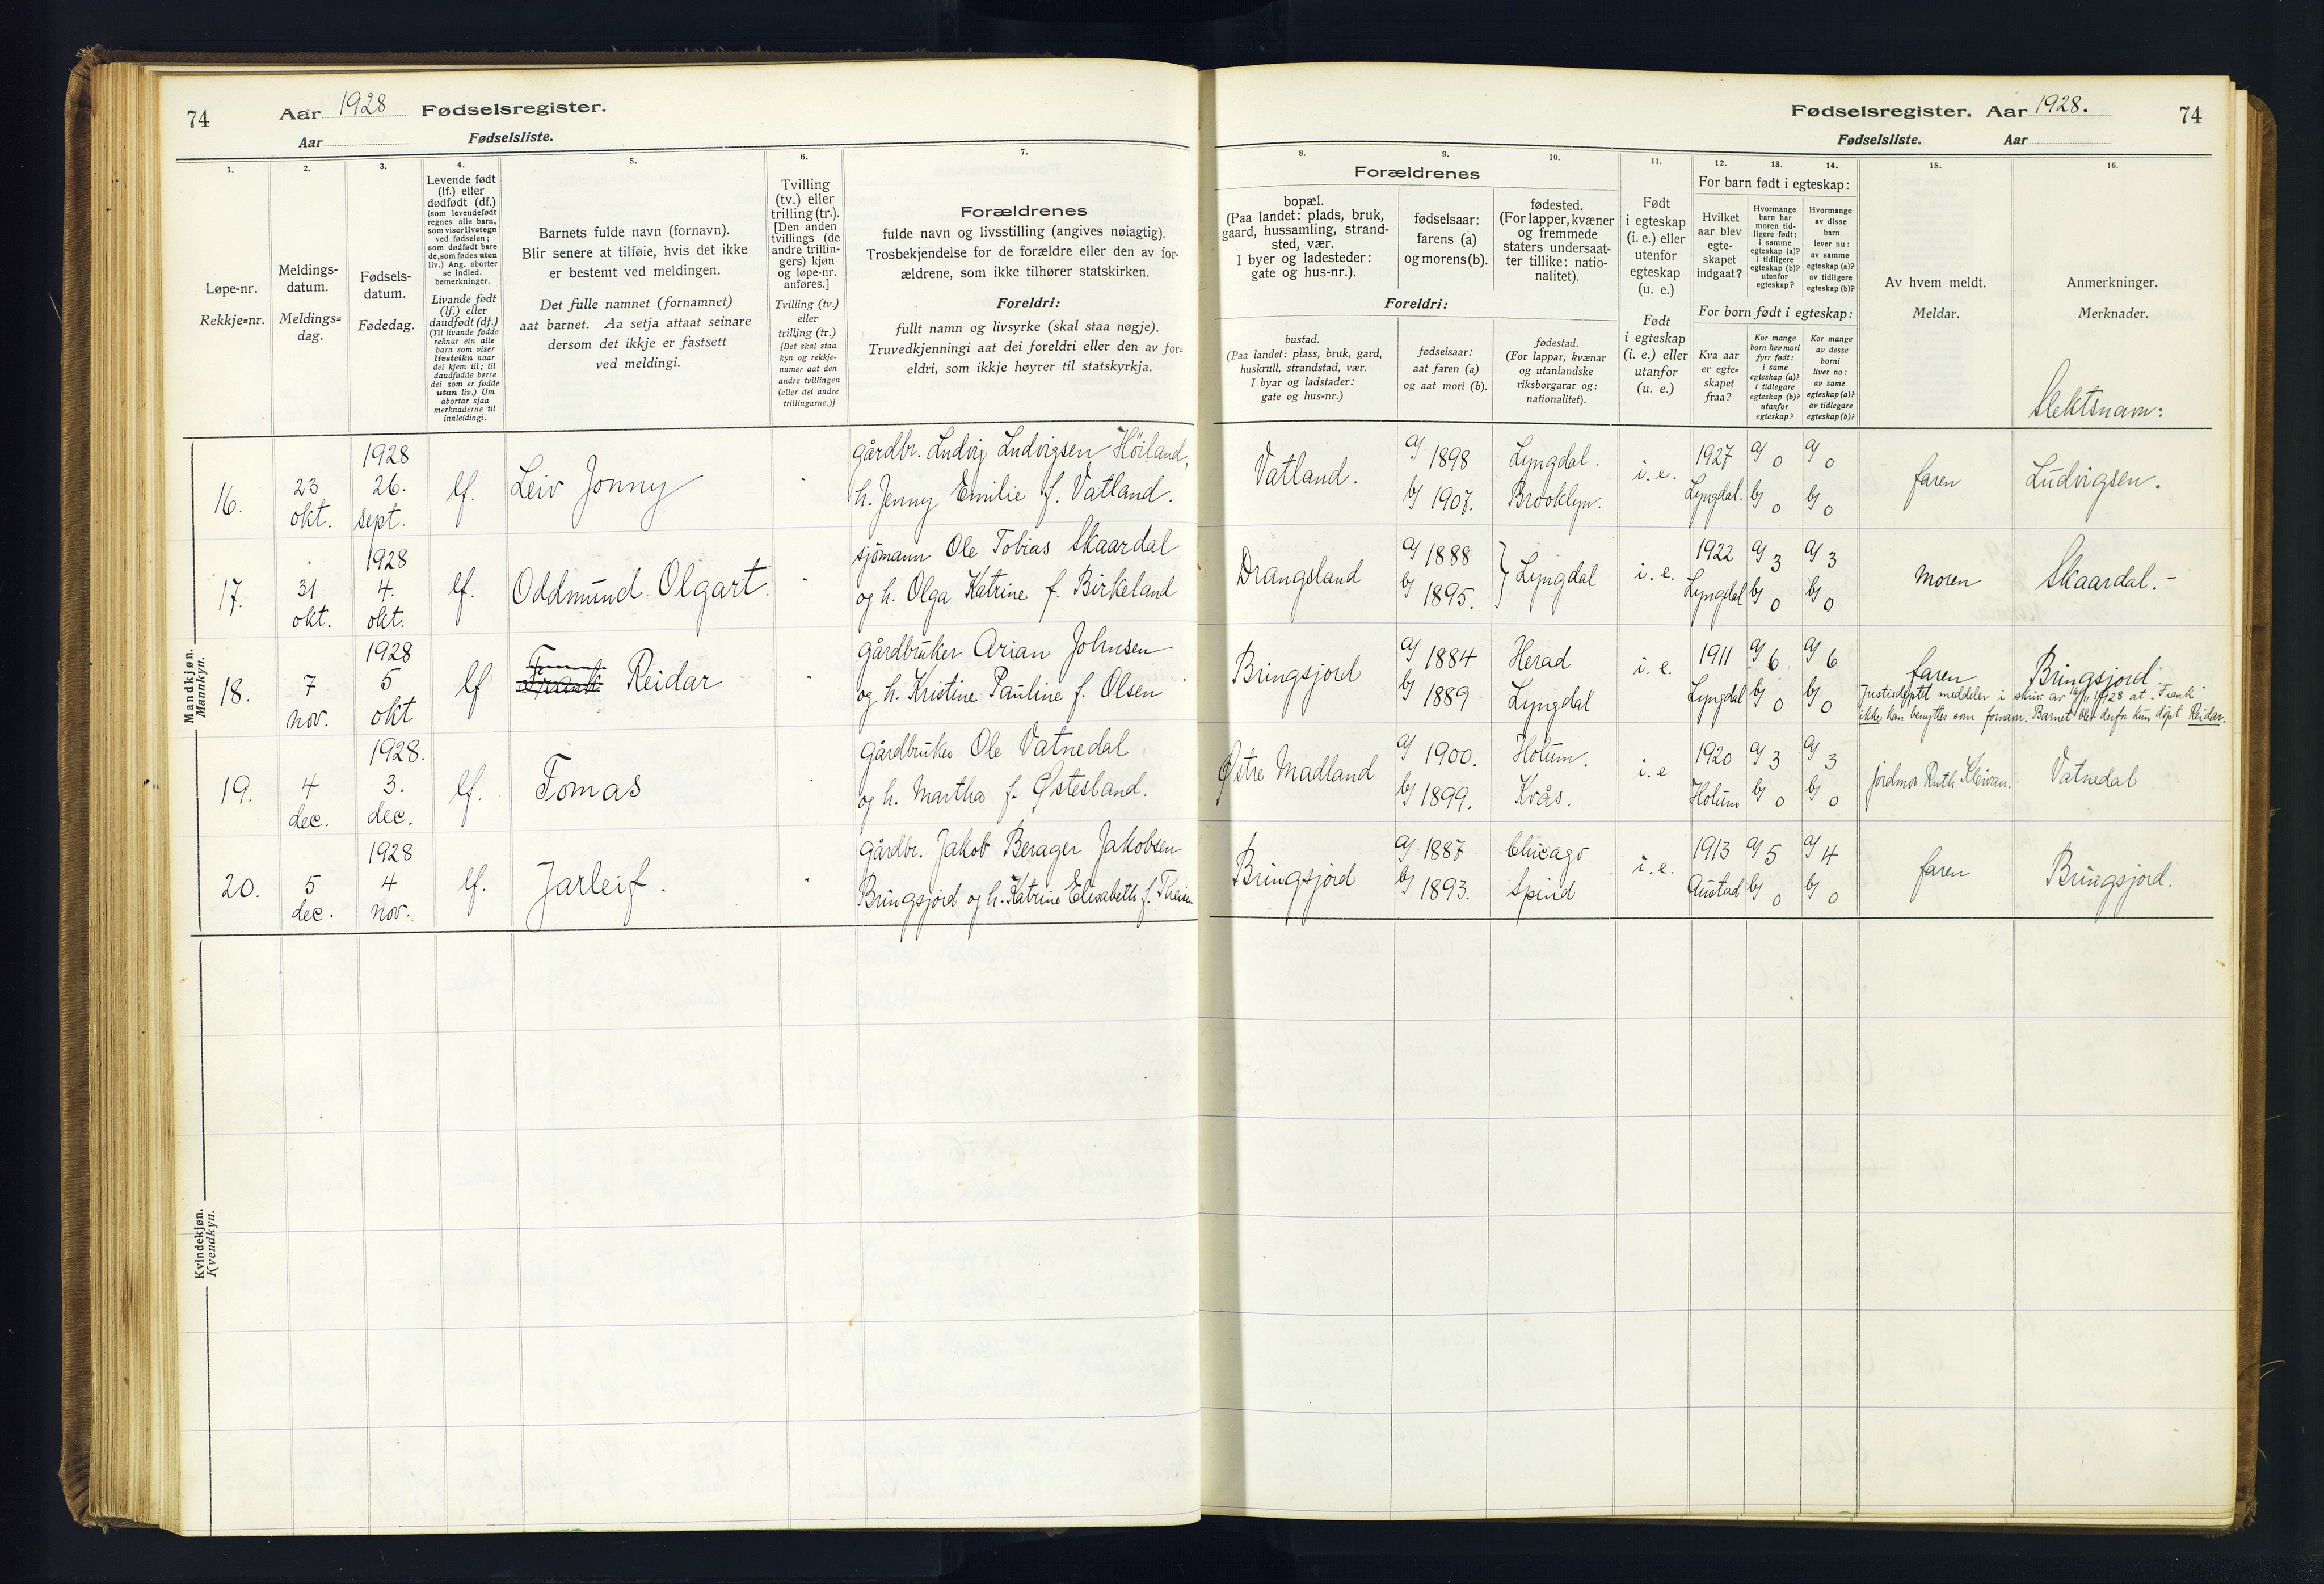 74 Aar 1928 Fødselsregister.
Aar Fødselsliste.
1. 2. 3. 4. 5. 6. 7.
Løpe-nr.
Rekkje=nr.
Meldings-
datum.
Meldings=
dag.
Fødsels-
datum.
Fødedag.
Levende født
(lf.) eller
dødfødt (df.)
(som levendefødt
regnes alle barn,
som viser livstegn
ved fødselen;
som dødfødt bare
de, som fødes uten
liv.) Ang. aborter
se indled.
bemerkninger.
Livande født
(lf.) eller
daudfødt (df.)
(Til livande fødde
reknar ein alle
barn som viser
livsteikn naar
dei kjem til; til
daudfødde berre
dei som er fødde
utan liv.) Um
abortar sjaa
merknaderne til
innleidingi.
Barnets fulde navn (fornavn).
Blir senere at tilføie, hvis det ikke
er bestemt ved meldingen.
Det fulle namnet (fornamnet)
aat barnet. Aa setja attaat seinare
dersom det ikkje er fastsett
ved meldingi.
Tvilling
(tv.) eller
trilling (tr.).
[Den anden
tvillings (de
andre trillin-
gers) kjøn
og løpe-nr.
anføres.]
Tvilling (tv.)
eller
trilling (tr.)
[Det skal staa
kyn og rekkje-
numer aat den
andre tvillingen
(eller dei andre
trillingarne.)]
Forældrenes
fulde navn og livsstilling (angives nøiagtig).
Trosbekjendelse for de forældre eller den av for-
ældrene, som ikke tilhører statskirken.
Foreldri:
fullt namn og livsyrke (skal staa nøgje).
Truvedkjenningi aat dei foreldri eller den av for=
eldri, som ikkje høyrer til statskyrkja.
Mandkjøn.
Mannkyn.
16. 23 okt. 1928 26. sept. lf. Leiv Jonny gårdbr. Ludvig Ludvigsen Höiland,
h. Jenny Emilie f. Vatland.
17. 31 okt. 1928 4. okt. lf. Oddmund Olgart. sjömann Ole Tobias Skaardal
og h. Olga Katrine f. Birkeland
18. 7 nov. 1928 5 okt lf Frank Reidar gårdbruker Arian Johnsen
og h. Kristine Pauline f. Olsen
19. 4 dec. 1928. 3. dec. lf. Tomas gårdbruker Ole Vatnedal
og h. Martha f. Østesland.
20. 5 dec. 1928 4 nov. lf. Jarleif. gårdbr. Jakob Berager Jakobsen
Bringsjord og h. Katrine Elisabeth f.
Kvindekjøn.
Kvendkyn.
Fødselsregister. Aar 1928. 74
Fødselsliste. Aar
8. 9. 10. 11. 12. 13. 14. 15. 16.
Forældrenes
bopæl.
(Paa landet: plads, bruk,
gaard, hussamling, strand-
sted, vær.
I byer og ladesteder:
gate og hus-nr.).
fødselsaar:
farens (a)
og morens (b).
fødested.
(For lapper, kvæner
og fremmede
staters undersaat-
ter tillike: natio-
nalitet).
Foreldri:
bustad.
(Paa landet: plass, bruk, gard,
huskrull, strandstad, vær.
I byar og ladstader:
gate og hus=nr.)
fødselsaar:
aat faren (a)
og aat mori (b).
fødestad.
(For lappar, kvænar
og utanlandske
riksborgarar og:
nationalitet).
Født
i egteskap
(i. e.) eller
utenfor
egteskap
(u. e.)
Født
i egteskap
(i. e.) eller
utanfor
(u. e.)
For barn født i egteskap:
Hvilket
aar blev
egte-
skapet
indgaat?
Hvormange
barn har
moren tid-
ligere født:
i samme
egteskap (a)?
i tidligere
egteskap (b)?
utenfor
egteskap?
Hvormange
av disse
barn
lever nu:
av samme
egteskap (a)?
av tidligere
egteskap (b)?
For born født i egteskap:
Kva aar
er egte=
skapet
fraa?
Kor mange
born hev mori
fyrr født:
i same
egteskap (a)?
i tidlegare
egteskap (b)?
utanfor
egteskap?
Kor mange
av desse
borni
liver no:
av same
egteskap (a)?
av tidlegare
egteskap (b)?
Av hvem meldt.
Meldar.
Anmerkninger.
Merknader.
Slektsnavn:
Vatland. a) 1898 Lyngdal. i. e. 1927 a) 0 a) 0 faren Ludvigsen.
b) 1907. Brooklyn. Lyngdal. b) 0 b) 0
Drangsland a) 1888 } Lyngdal i. e. 1922 a) 3 a) 3 moren Skaardal. -
b) 1895. Lyngdal b) 0 b) 0
Bringsjord a) 1884 Herad i. e. 1911 a) 6 a) 6 faren Bringsjord.
b) 1889 Lyngdal Lyngdal b) 0 b) 0
Justisdeptet meddeler i skriv av 16/11 1928 at "Frank"
ikke kan benyttes som fornavn. Barnet blev derfor kun døpt Reidar.
Østre Madland a) 1900. Holum. i. e 1920 a) 3 a) 3 jordmor Ruth Kleivan. Vatnedal
b) 1899. Kvås. Holum b) 0 b) 0
Bringsjord a) 1887 Chicago i. e. 1913 a) 5 a) 4 faren Bringsjord.
b) 1893. Spind Austad b) 0 b) 0